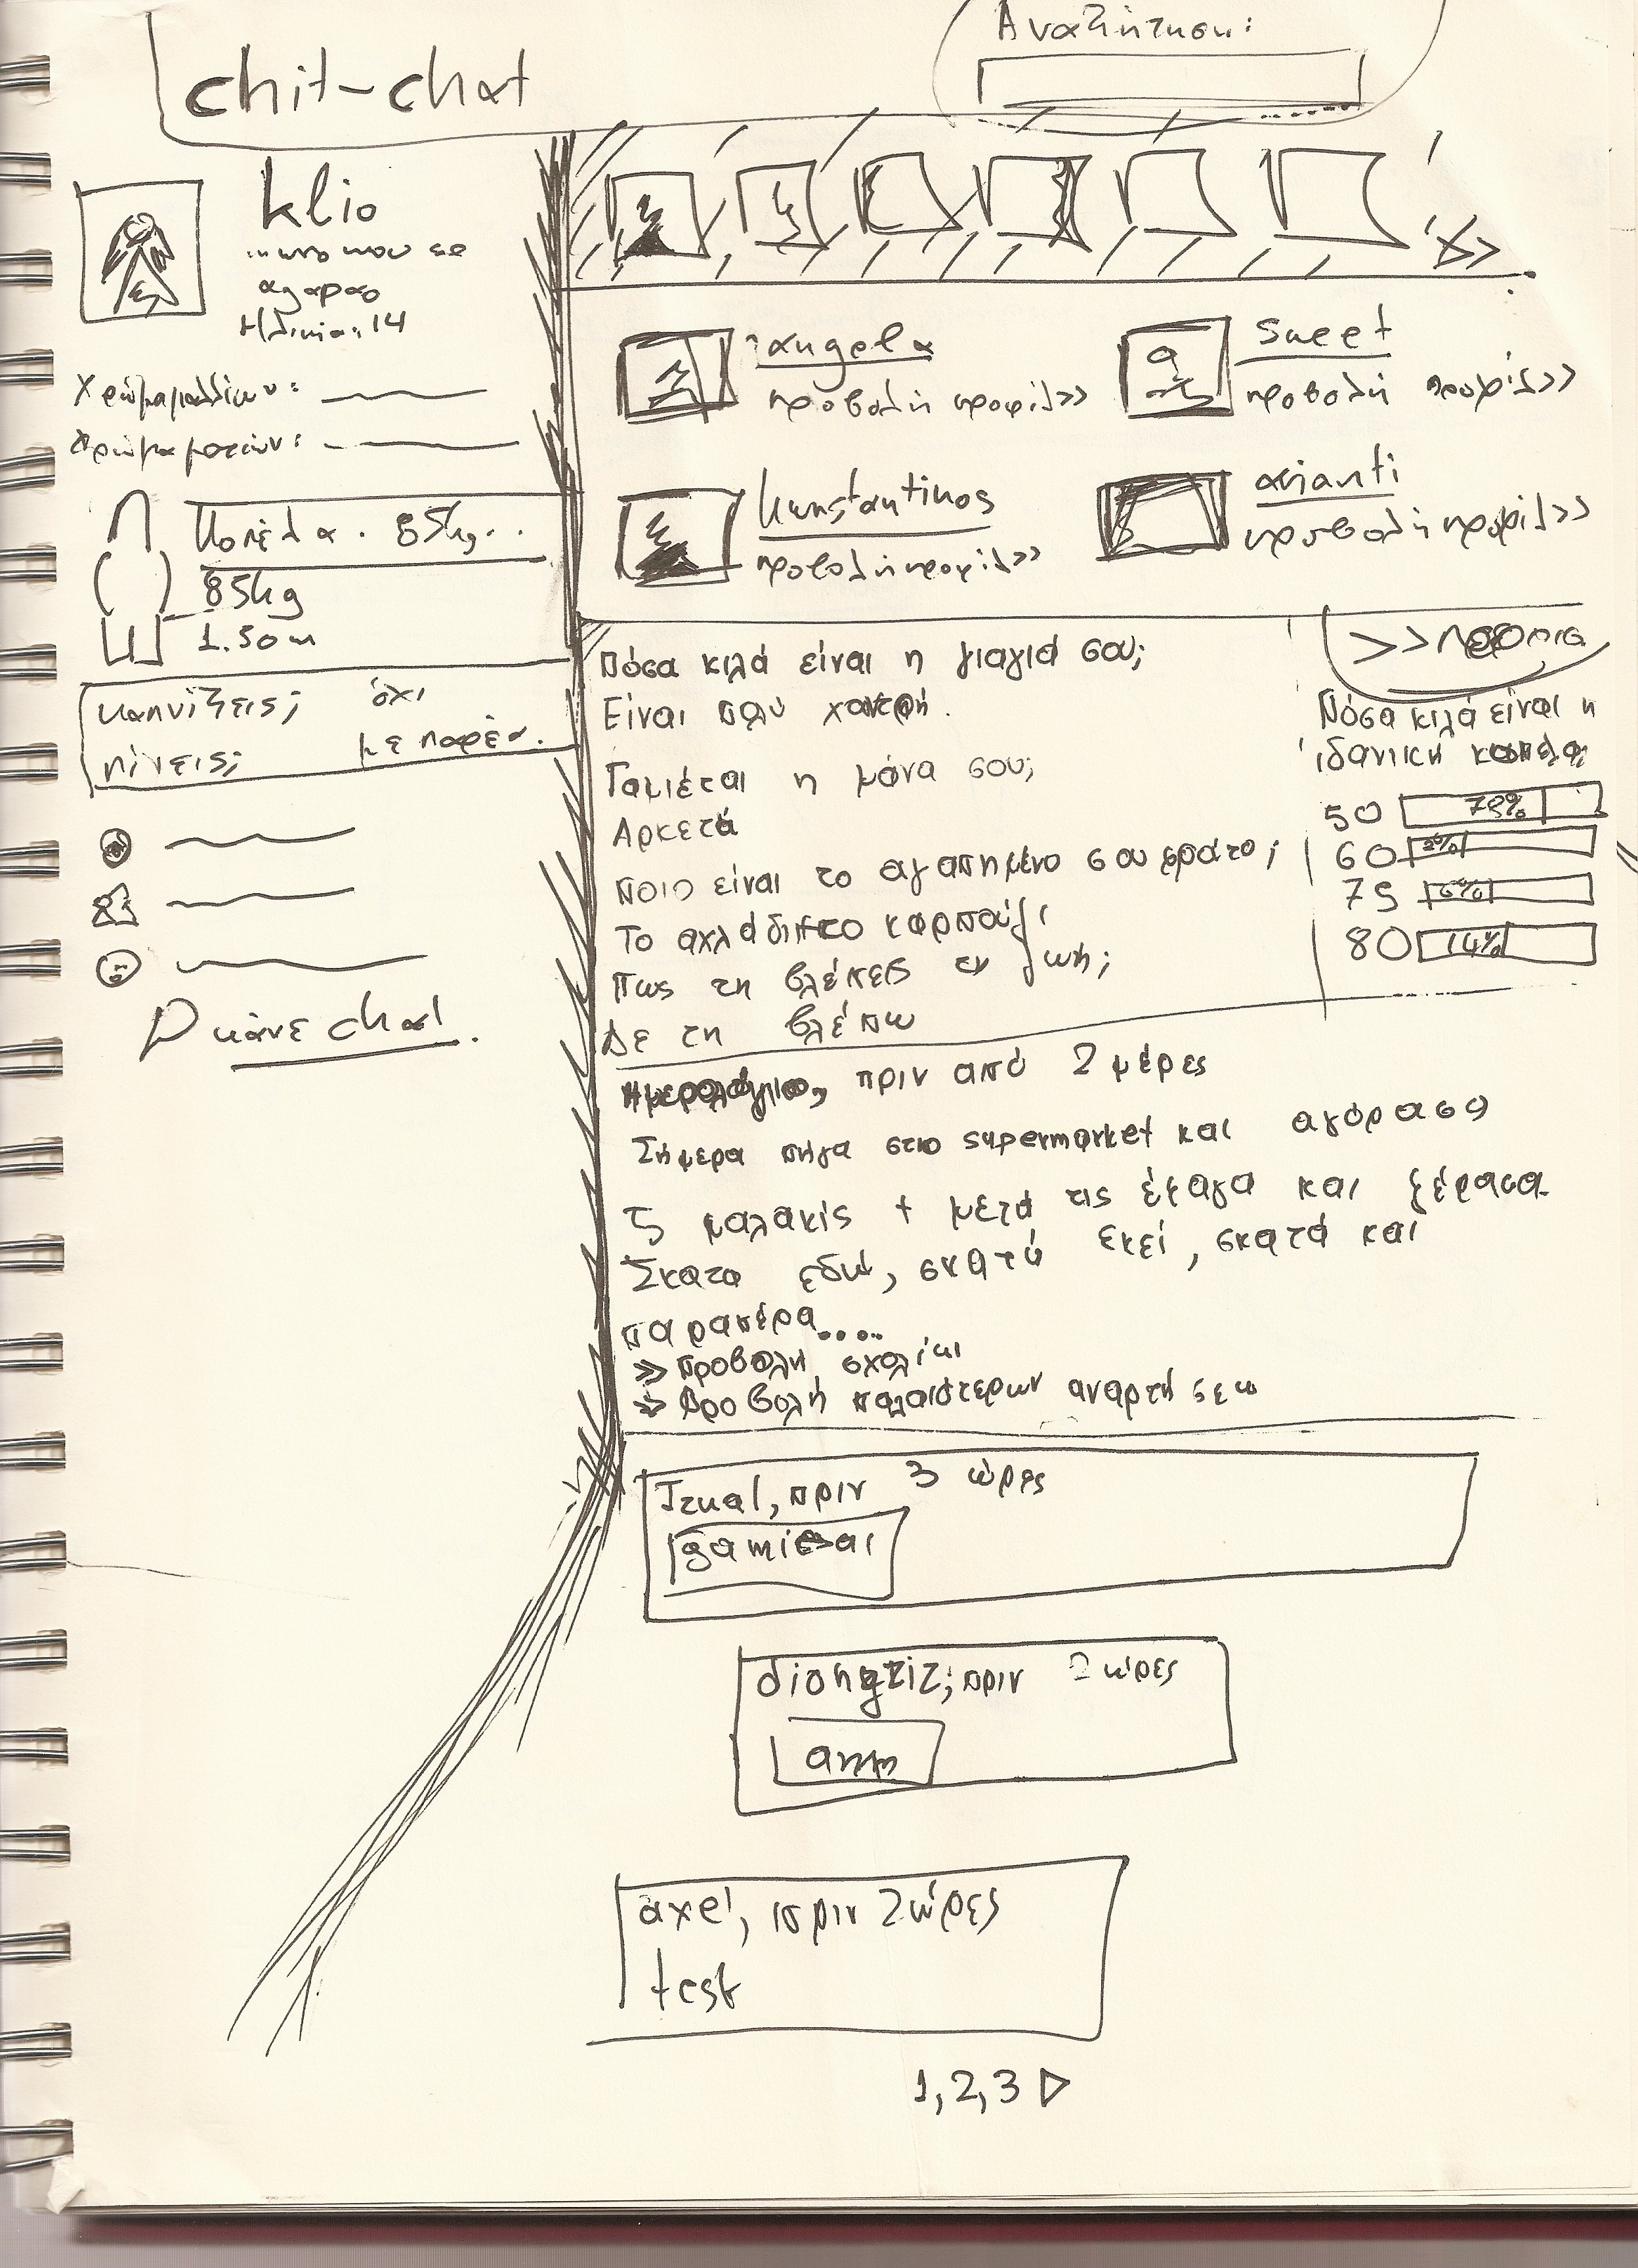 chit-chat
Αναζήτηση:
klio
που σε
agapao
Ηλικία: 14
Χρώμα μαλλιών:
Χρώμα ματιών:
Κοπέλα. 85kg..
85kg
1.50m
καπνίζεις; όχι
πίνεις; με παρέα.
κάνε chat
angela
προβολή προφίλ>>
sweet
προβολή προφίλ>>
konstantinos
προβολή προφίλ>>
arianti
προβολή προφίλ>>
Πόσα κιλά είναι η γιαγιά σου;
Είναι πολύ χοντρή.
Γαμιέται η μάνα σου;
Αρκετά
Ποιο είναι το αγαπημένο σου φρούτο;
Το αχλάδι το καρπούζι
Πως τη βλέπεις τη ζωή;
Δε τη βλέπω
>>
Πόσα κιλά είναι η
ιδανική κοπέλα
50 75%
60
75
80 14%
Ημερολόγιο, πριν από 2 μέρες
Σήμερα πήγα στο supermarket και αγόρασα
5 μαλακίς + μετά τις έφαγα και ξέρασα.
Σκατα εδώ, σκατά εκεί, σκατά και
παραπέρα....
>> Προβολή σχολίων
>> Προβολή παλαιότερων αναρτήσεω
Izual, πριν 3 ώρες
gamiesai
dionyziz, πριν 2 ώρες
axel, πριν 2 ώρες
test
1, 2, 3 ▷